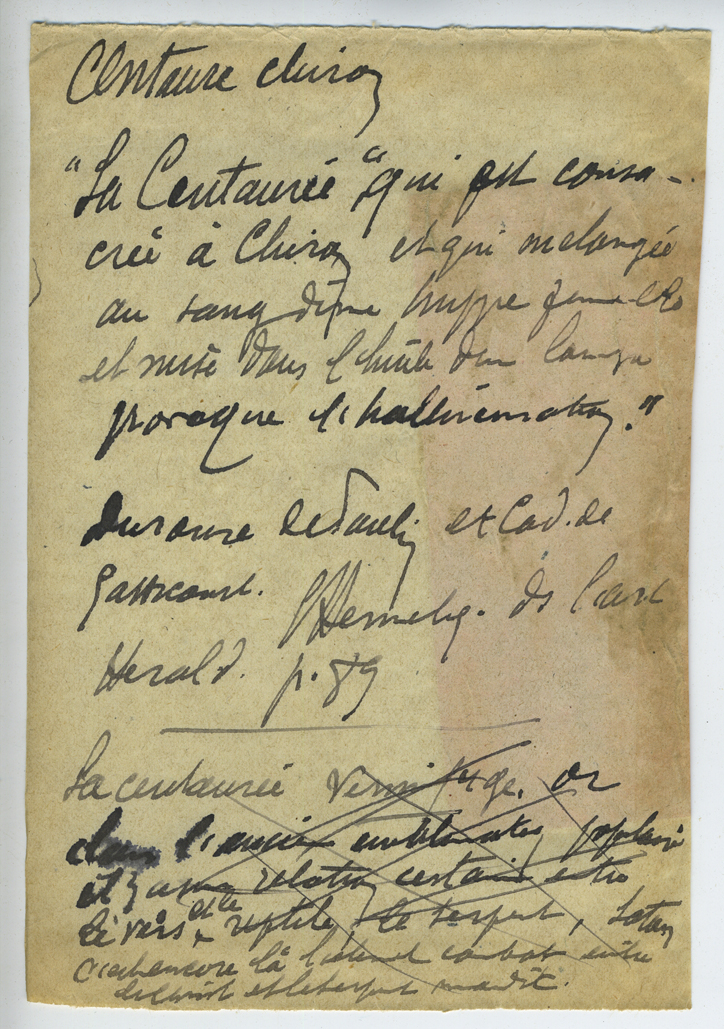 Centaure chiron
"La Centaurée" qui est consa-
crée à Chiron et qui melangée
au sang d'une huppe femelle
et mise dans l'huile d'une lampe
provoque l'hallucination."
de et Cad. de
Gassicourt. L'Hermétis. ds l'art
Herald. p. 89
La centaurée vermifuge. or
dans l'ancien emblematique populaire
il y a une relation certaine entre
le vers et le reptile, le serpent, Satan
c'est encore là l'eternel combat entre
le Christ et le serpent maudit.